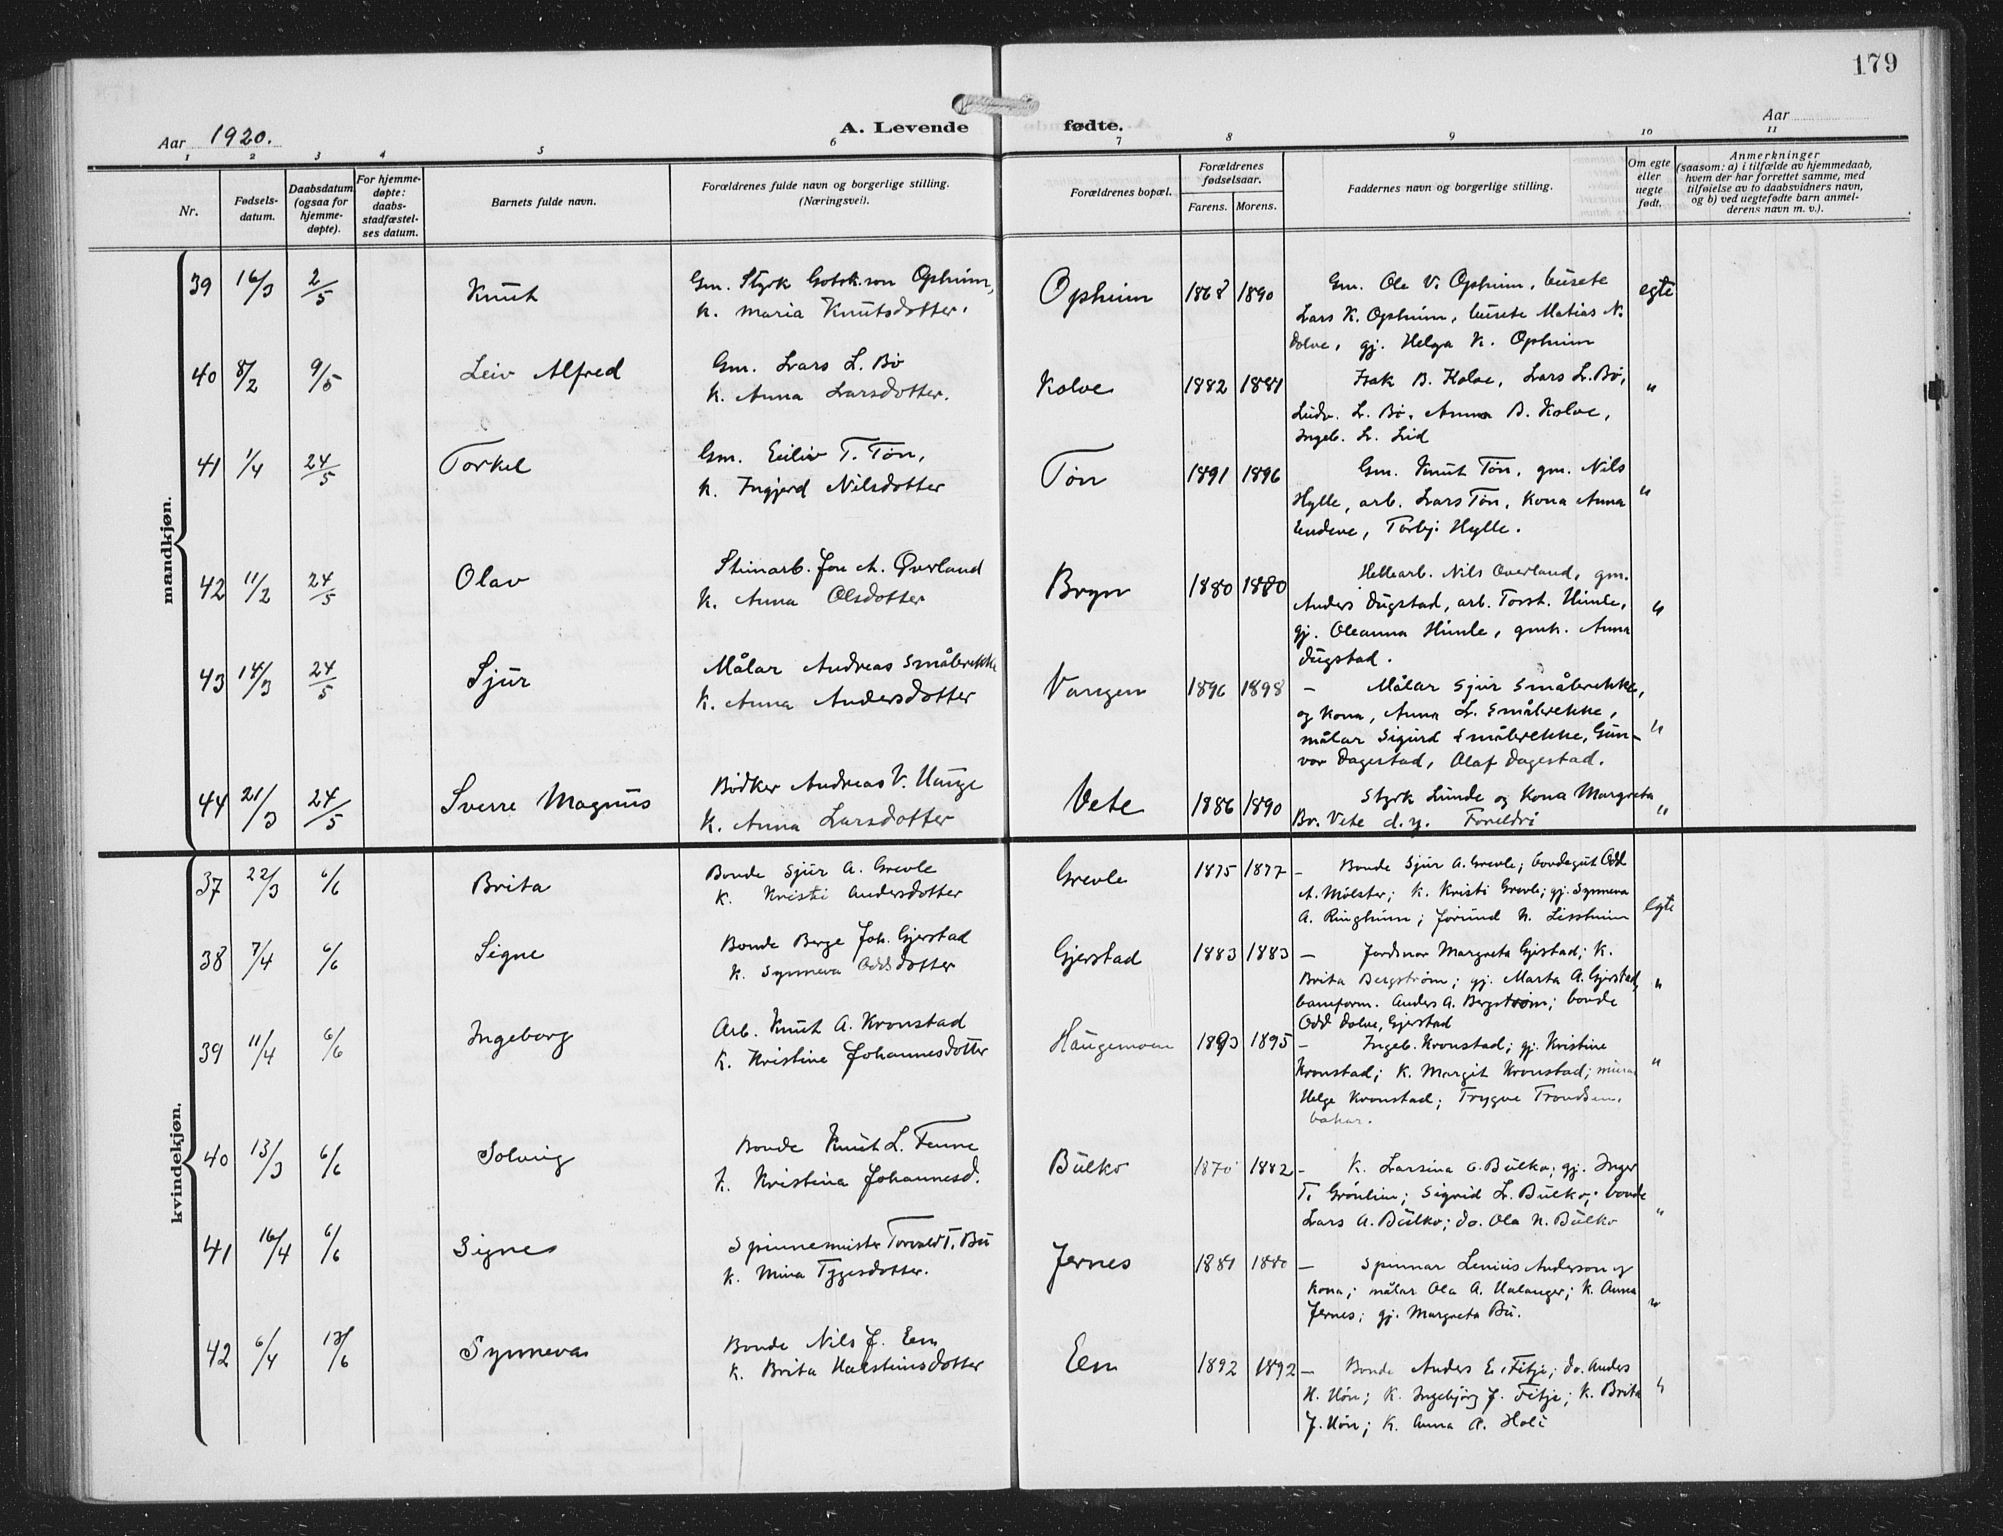 179
Aar 1920.
A. Levende fødte.
Aar
1 2 3 4 5 6 7 8 9 10 11
Nr.
Fødsels-
datum.
Daabsdatum
(ogsaa for
hjemme-
døpte).
For hjemme-
døpte:
daabs-
stadfæstel-
ses datum.
Barnets fulde navn.
Forældrenes fulde navn og borgerlige stilling.
(Næringsvei).
Forældrenes bopæl.
Forældrenes
fødselsaar.
Farens. Morens.
Faddernes navn og borgerlige stilling.
Om egte
eller
uegte
født.
Anmerkninger
(saasom: a) i tilfælde av hjemmedaab,
hvem der har forrettet samme, med
tilføielse av to daabsvidners navn,
og b) ved uegtefødte barn anmel-
derens navn m. v.).
mandkjøn.
39 16/3 2/5 Knut
Gm. Styrk Gotsk.son Opheim,
K. Maria Knutsdotter.
Opheim 1868 1890
Gm. Ole V. Opheim, busete
Lars K. Opheim, busete Matias N.
Dolve, gj. Helga K. Opheim
egte
40 8/2 9/5 Leiv Alfred
Gm. Lars L. Bø
K. Anna Larsdotter.
Kolve 1882 1881
Isak B. Kolve, Lars L. Bø,
Ludv. L. Bø, Anna B. Kolve,
Ingeb. L. Lid
"
41 1/4 24/5 Torkel
Gm. Eiliv T. Tøn,
K. Ingjerd Nilsdotter
Tøn 1891 1896
Gm. Knut Tøn, gm. Nils
Hylle, arb. Lars Tøn, Kona Anna
Endeve, Torbj. Hylle.
"
42 11/2 24/5 Olav
Steinarb. Jon A. Øverland
K. Anna Olsdotter
Bryn 1880 1880
Hellearb. Nils Øverland, gm.
Anders Dugstad, arb. Torst. Himle,
gj. Oleanna Himle, gmk. Anna
Dugstad.
"
43 14/3 24/5 Sjur
Målar Andreas Småbrekke
K. Anna Andersdotter
Vangen 1896 1898
– Målar Sjur Småbrekke,
og Kona, Anna L. Småbrekke,
målar Sigurd Småbrekke, Gun-
vor Dagestad, Olaf Dagestad.
"
44 21/3 24/5 Sverre Magnus
Bødker Andreas V. Hauge
K. Anna Larsdotter
Vete 1886 1890
Styrk Lunde og Kona Margreta
Br. Vete d.y. Foreldri
"
kvindekjøn.
37 22/3 6/6 Brita
Bonde Sjur A. Grevle
K. Kristi Andersdotter
Grevle 1875 1877
– Bonde Sjur A. Grevle; bondegut Odd
A. Mølster; K. Kristi Grevle; gj. Synneva
A. Ringheim; Jorund N. Lissheim
egte
38 7/4 6/6 Signe
Bonde Berge Joh. Gjerstad
K. Synneva Oddsdotter
Gjerstad 1883 1883
– Jordmor Margreta Gjerstad; K.
Brita Bergstrøm; gj. Marta A. Gjerstad,
baneform. Anders A. Bergstrøm; bonde
Odd Dolve, Gjerstad
"
39 11/4 6/6 Ingeborg
Arb. Knut A. Kronstad
K. Kristine Johannesdotter
Haugemoen 1893 1895
– Ingeb. Kronstad; gj. Kristine
Kronstad; K. Margit Kronstad; murar
Helge Kronstad; Trygve Trondsen,
bakar.
"
40 13/3 6/6 Solveig
Bonde Knut L. Fenne
K. Kristina Johannesd.
Bulko 1870 1882
– K. Larsina A. Bulko; gj. Inger
T. Grønlien; Sigrid L. Bulko; bonde
Lars A. Bulko; do. Ola N. Bulko
"
41 16/4 6/6 Signe
Spinnemeister Torvald T. Bu
K. Mina Tygesdotter.
Jernes 1881 1880
– Spinnar Linius Anderson og
Kona; målar Ola A. Halanger; K. Anna
Jernes; gj. Margreta Bu.
"
42 6/4 13/6 Synneva
Bonde Nils J. Eem
K. Brita Halsteinsdotter
Eem 1892 1892
– Bonde Anders E. Fitje; do. Anders
H. Høn; K. Ingebjørg J. Fitje; K. Brita
J. Høn; K. Anna A. Holi
"